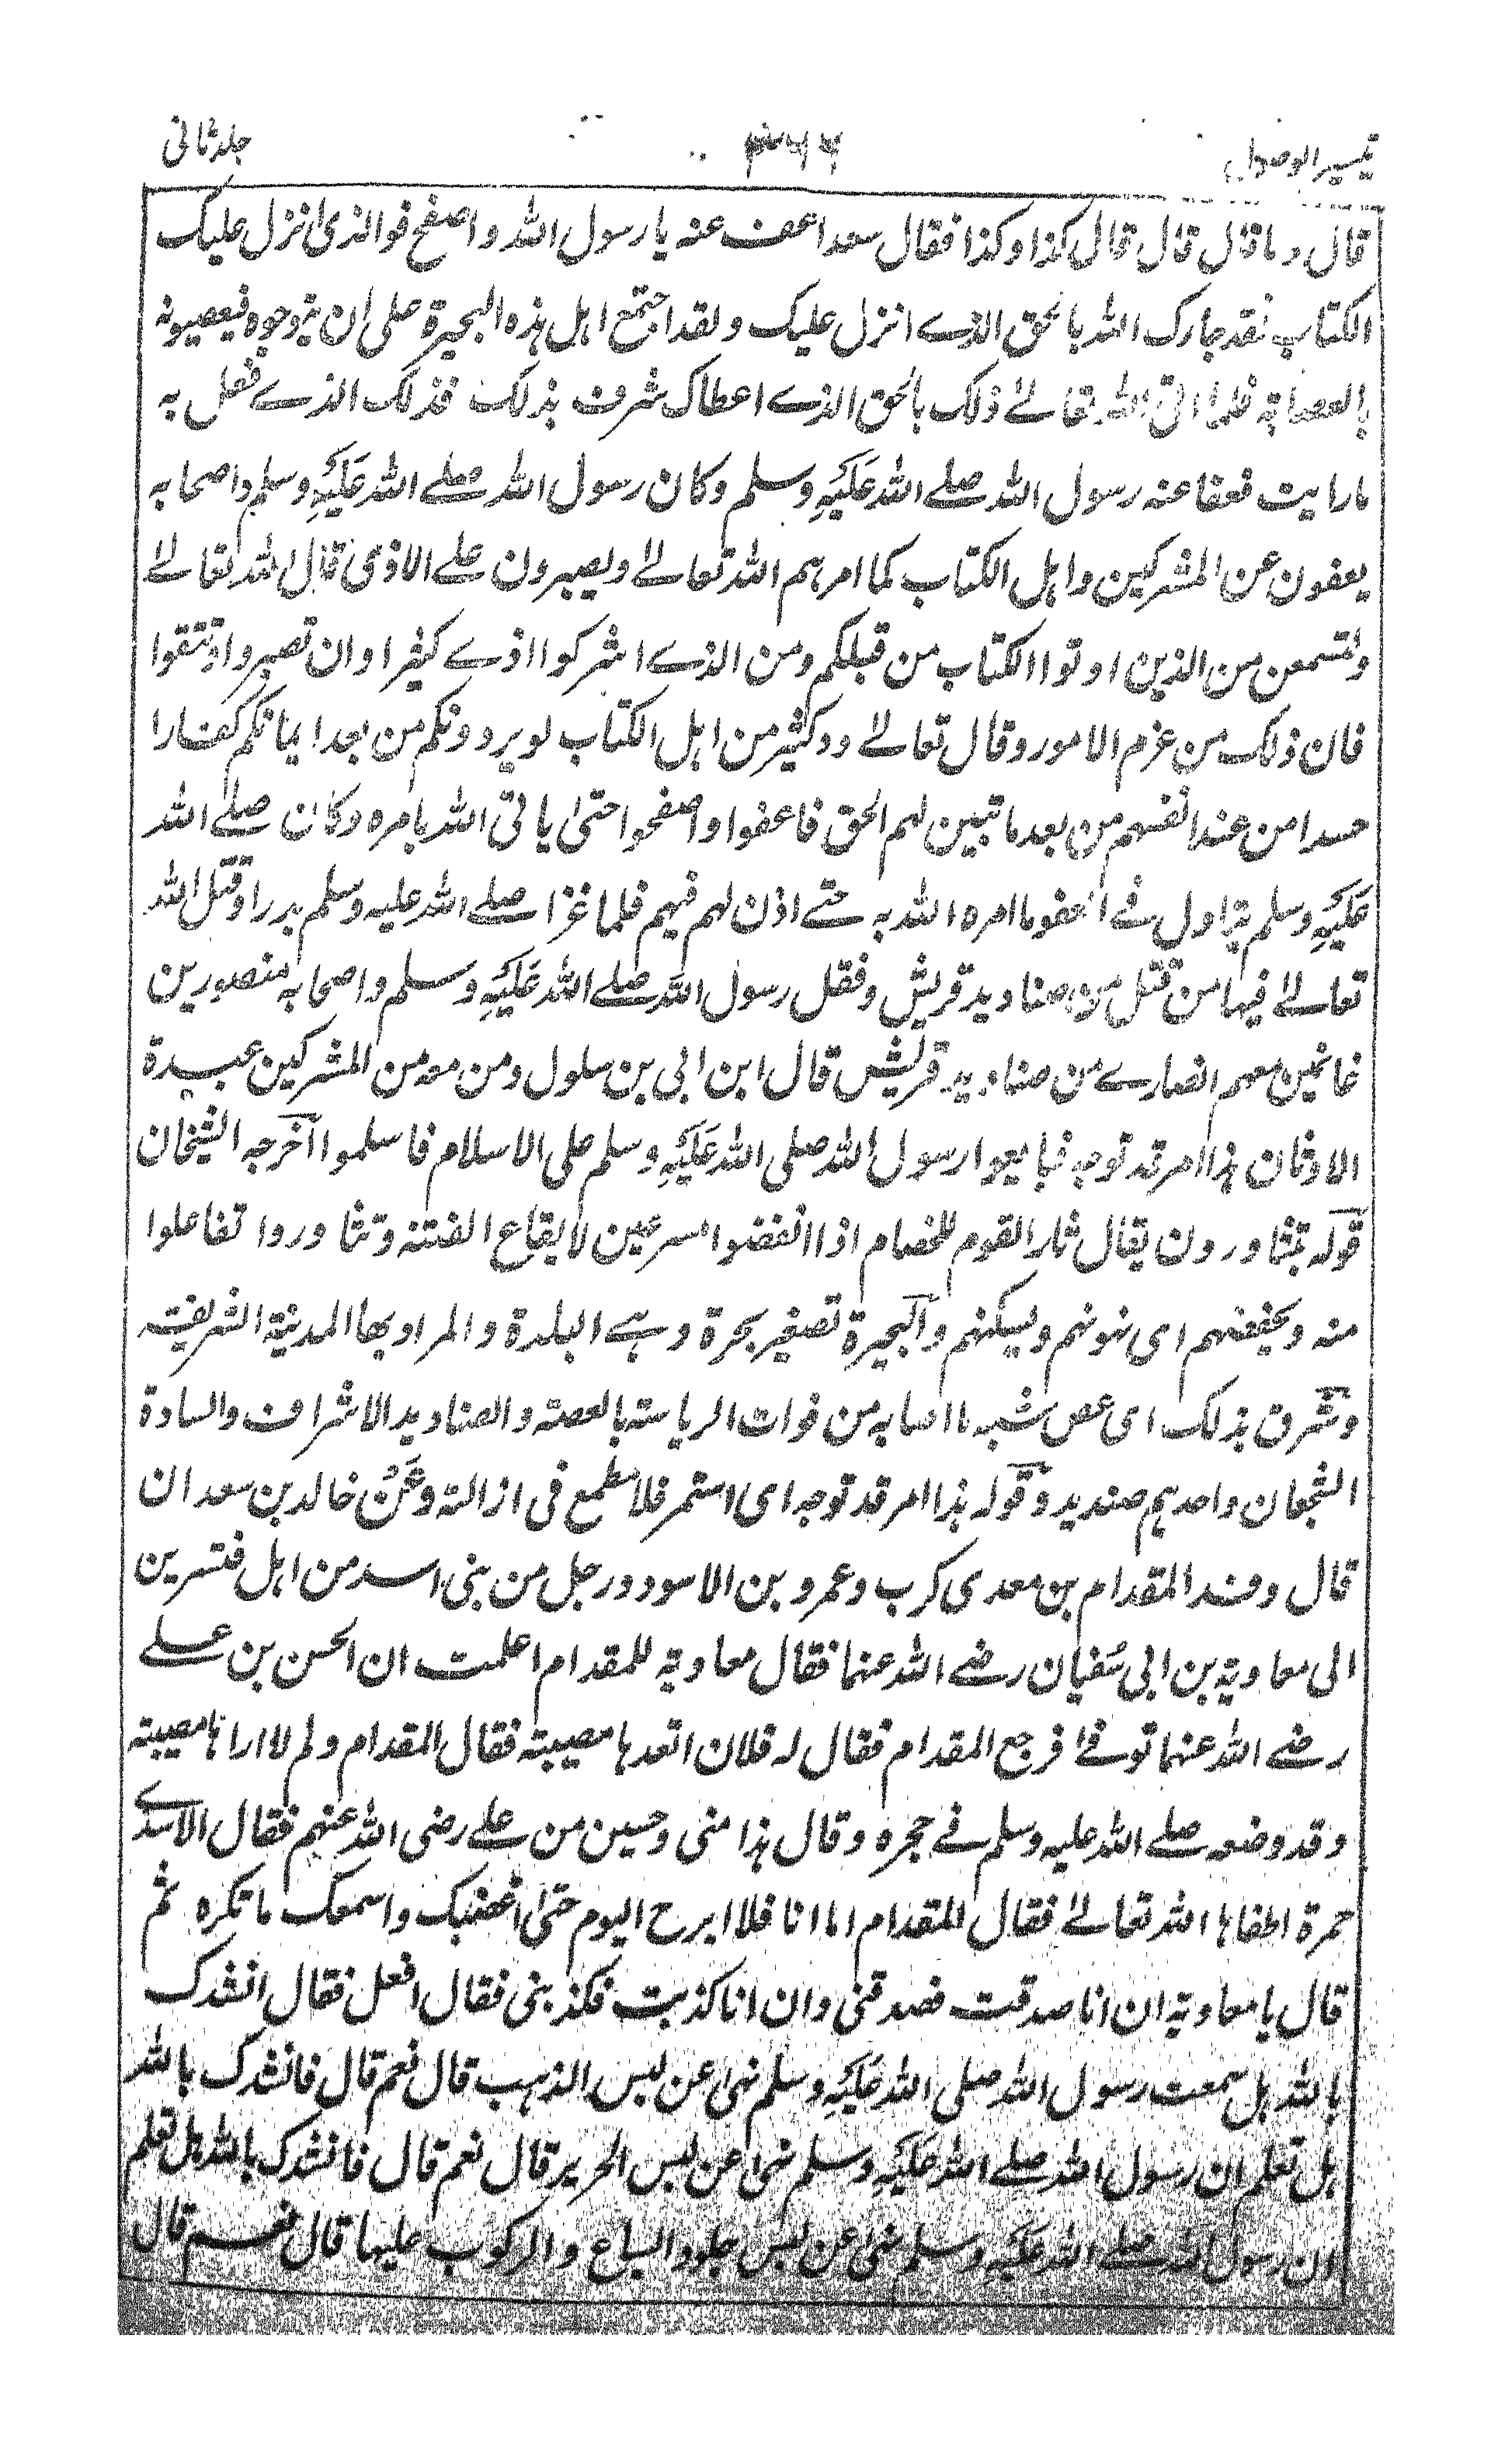 تيسير الوصول جلد ثانى
قال وما قال قال قال كذا وكذا فقال سعد اعف عنه يا رسول الله واصفح فوالذى انزل عليك
الكتاب لقد جارك الله بالحق الذے انزل عليك ولقد اجتمع اهل هذه البحيرة على ان يتوجوه فيعصبونه
بالعصابة فلما اتى الله تعالےٰ ذلك بالحق الذے اعطاك شرق بذلك فذلك الذے فعل به
ما رايت فعفا عنه رسول الله صلے الله عَلَيْهِ وسلم وكان رسول الله صلے الله عَلَيْهِ وسلم واصحابه
يعفون عن المشركين واهل الكتاب كما امرهم الله تعالےٰ ويصبرون علے الاذى قال الله تعالےٰ
ولتسمعن من الذين اوتوا الكتاب من قبلكم ومن الذے اشركوا اذے كثيرا وان تصبروا وتتقوا
فان ذلك من عزم الامور وقال تعالےٰ ود كثير من اهل الكتاب لو يردونكم من بعد ايمانكم كفارا
حسدا من عند انفسهم من بعد ما تبين لهم الحق فاعفوا واصفحوا حتىٰ ياتى الله بامره وكان صلے الله
عَلَيْهِ وسلم يتاول فے العفو ما امره الله به حتے اذن لهم فيهم فلما غزا صلے الله عليه وسلم بدرا وقتل الله
تعالےٰ فيها من قتل من صناديد قريش وفقل رسول الله صلے الله عَلَيْهِ وسلم واصحابه منصورين
غانمين معهم انصارے من صناديد قريش قال ابن ابى بن سلول ومن معه من المشركين عبدة
الاوثان هذا امر قد توجه فبايعوا رسول الله صلى الله عَلَيْهِ وسلم على الاسلام فاسلموا آخرجه الشيخان
قوله يتثاورون يقال ثار القوم للخصام اذا انفضوا مسرعين لايقاع الفتنة وتثاوروا تفاعلوا
منه ويخفضهم اى يهونهم ويسكنهم والبحيرة تصغير بحرة وهے البلدة والمراد بها المدينة الشريفة
وشرق بذلك اى غص شبه ما اصابه من فوات الرياسة بالغصة والصناديد الاشراف والسادة
الشجعان واحدهم صنديد وقوله هذا امر قد توجه اى استمر فلا مطمع فى ازالته وعَنْ خالد بن سعدان
قال وفد المقدام بن معدى كرب وعمرو بن الاسود ورجل من بنى اسد من اهل قنسرين
الى معاوية بن ابى سفيان رضے الله عنهما فقال معاوية للمقدام اعلمت ان الحسن بن علے
رضے الله عنهما توفےٰ فرجع المقدام فقال له فلان اتعدها مصيبة فقال المقدام ولم لا اراها مصيبة
وقد وضعه صلے الله عليه وسلم فے حجره وقال هذا منى وحسين من علے رضى الله عنهم فقال الاسدے
جمرة اطفاها الله تعالےٰ فقال المقدام اما انا فلا ابرح اليوم حتىٰ اغضبك واسمعك ما تكره ثم
قال يا معاوية ان انا صدقت فصدقنى وان انا كذبت فكذبنى فقال افعل فقال انشدك
بالله هل سمعت رسول الله صلى الله عَلَيْهِ وسلم نهىٰ عن لبس الذهب قال نعم قال فانشدك بالله
هل تعلم ان رسول الله صلے الله عَلَيْهِ وسلم نهىٰ عن لبس الحرير قال نعم قال فانشدك بالله هل تعلم
ان رسول الله صلے الله عَلَيْهِ وسلم نهىٰ عن لبس جلود السباع والركوب عليها قال نعم قال